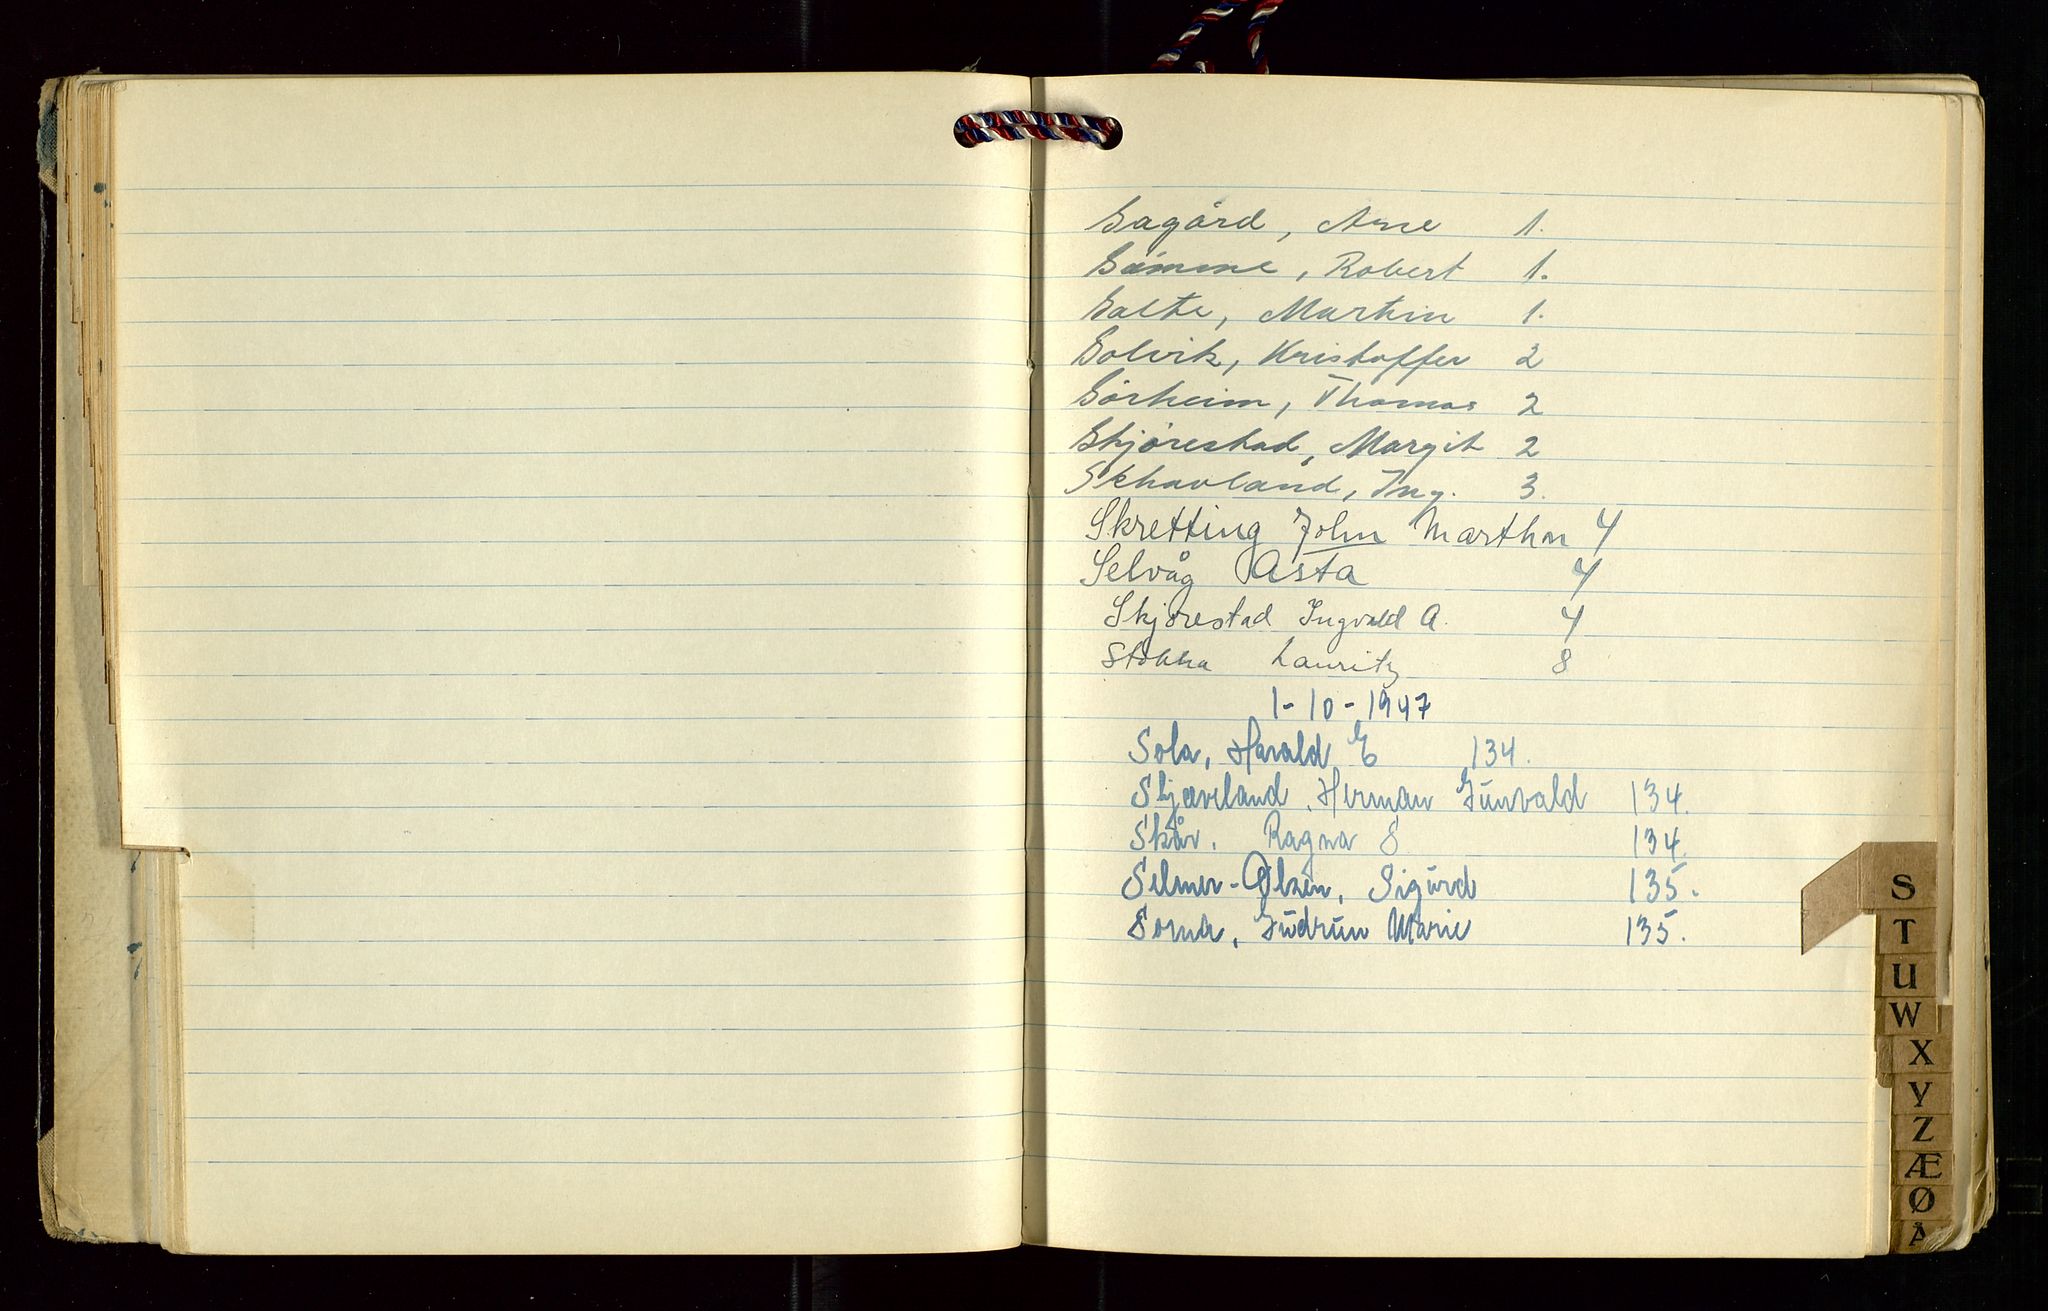 Sagård, Arne 1.
Sømme, Robert 1.
Salte, Martin 1.
Solvik, Kristoffer 2
Sørheim, Thomas 2
Skjørestad, Margit 2
Skhavland, Ing. 3.
Skretting John Marthon 4
Selvåg Asta 4
Skjørestad Ingvald A. 4
Stokka Lauritz 8
1-10-1947
Sola, Harald E 134.
Skjæveland, Herman Gunvald 134.
Skår. Ragna S 134.
Selmer-Olsen, Sigurd 135.
Soma, Gudrun Marie 135.
S
T
U
W
X
Y
Z
Æ
Ø
Å